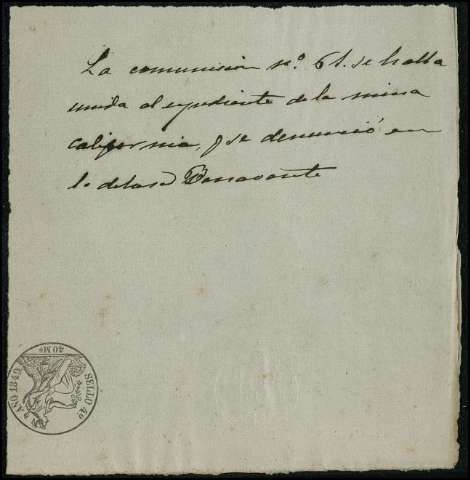 La comunicion nº. 61. se halla
unida al espediente de la mina
California, q se denunció en
lo de Benavente
SELLO 4º
AÑO 1849.
40 Ms